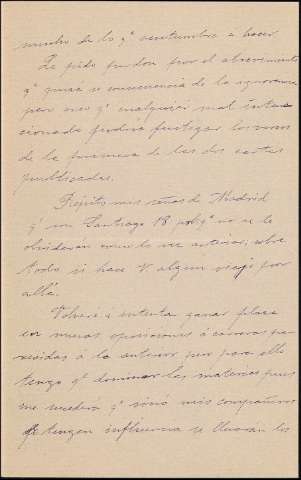 mucho de lo q.e acostumbra á hacer.
Le pido perdon por el atrevimiento
q.e quiza es consecuencia de la ignorancia
pero creo q.e cualquier mal inten
cionado podria fustigar los
de la promesa de las dos cartas
publicadas.
Repito mis señas de Madrid
q.e son Santiago 18 pobq.e no se le
olvidarán como la vez anterior, sobre
todo si hace V. algun viaje por
allá.
Volveré á intentar ganar plaza
en nuevas oposiciones á cátedras pa
recidas á la anterior pero para ello
tengo q.e dominar las materias pues
me sucederá q.e sinó mis compañeros
q.e tengan influencia se llevarán los